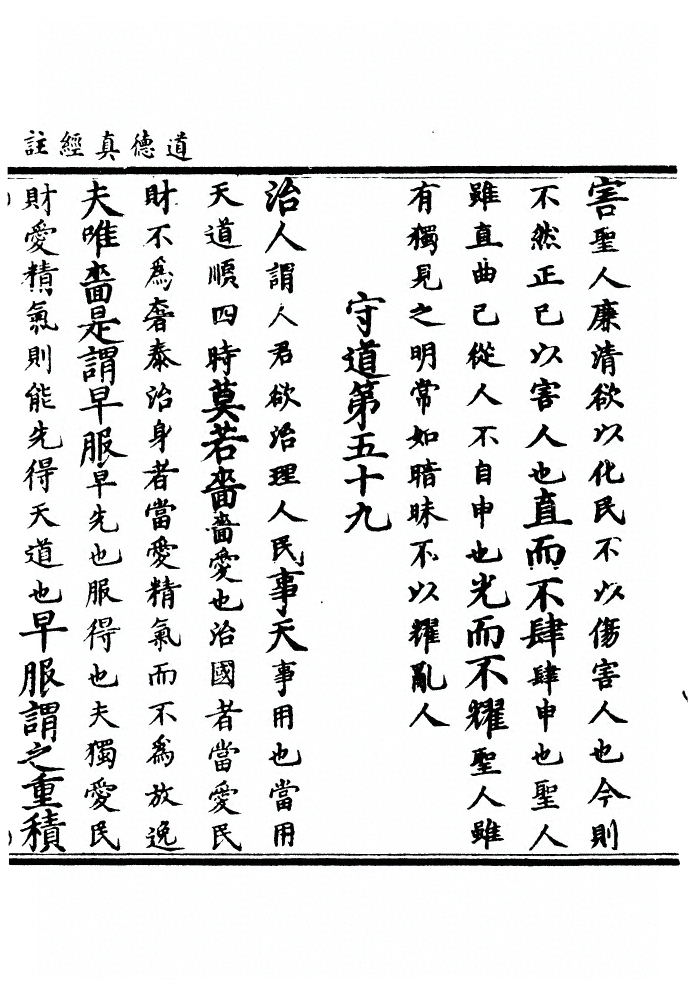 道德真經註
害聖人廉清欲以化民不以傷害人也今則
不然正己以害人也直而不肆肆申也聖人
雖直曲己從人不自申也光而不耀聖人雖
有獨見之明常如暗昧不以耀亂人
守道第五十九
治人謂人君欲治理人民事天事用也當用
天道順四時莫若嗇嗇愛也治國者當愛民
財不為奢泰治身者當愛精氣而不為放逸
夫唯嗇是謂早服早先也服得也夫獨愛民
財愛精氣則能先得天道也早服謂之重積